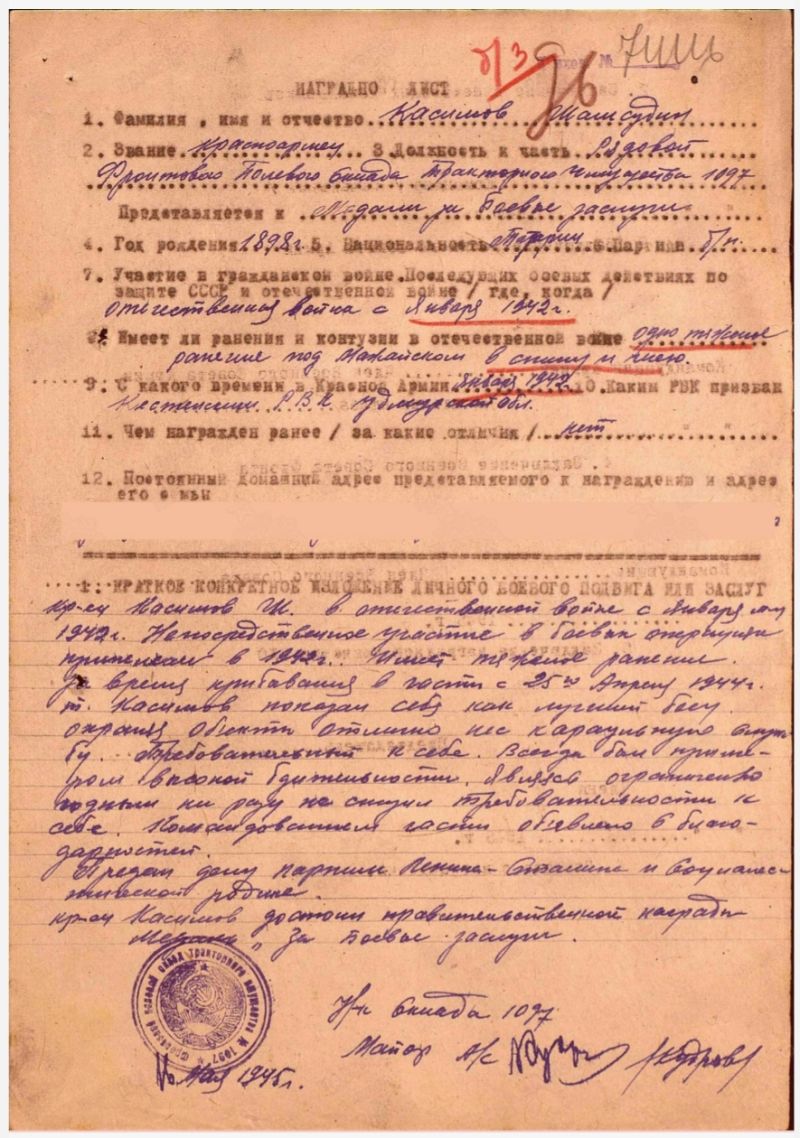 б/з
№ 7
НАГРАДНО ЛИСТ
1. Фамилия, имя и отчество Касимов Шамсудин
2. Звание красноармеец 3 Должность и часть Рядовой
Фронтового Полевого склада тракторного имущества 1097
Представляется к Медали за Боевые заслуги
4. Год рождения 1898г. 5. Национальность татарин 6. Партийн б/п.
7. Участие в гражданской войне. Последующих боевых действиях по
защите СССР и отечественной войне / где, когда /
отечественная война с Января 1942г.
8. Имеет ли ранения и контузии в отечественной войне одно тяжелое
ранение под Можайском в спину и
9. С какого времени в Красной Армии Января 1942 10. Каким РВК призван
РВК Удмурской обл.
11. Чем награжден ранее / за какие отличия / нет
12. Постоянный домашний адрес представляемого к награждению и адрес
его семьи
1. КРАТКОЕ КОНКРЕТНОЕ ИЗЛОЖЕНИЕ ЛИЧНОГО БОЕВОГО ПОДВИГА ИЛИ ЗАСЛУГ
кр-ец Касимов Ш. в отечественной войне с Января м-ца
1942г. Непосредственное участие в боевых операциях
принимал в 1942г. Имеет тяжелое ранение.
За время пребывания в части с 25го Апреля 1944г.
т. Касимов показал себя как лучший боец.
охраняя объекты отлично нес караульную служ
бу. Требовательный к себе. Всегда был приме-
ром высокой бдительности. Являясь ограниченно
годным ни разу не снизил требовательности к
себе. Командованием части объявлено 6 благо-
дарностей.
Предан делу партии Ленина-Сталина и Социалис-
тической родине.
кр-ец Касимов достоин правительственной награды
Медаль „За Боевые заслуги.
Н-к склада 1097
Майор А/С /Кудров/
Мая 1945г.